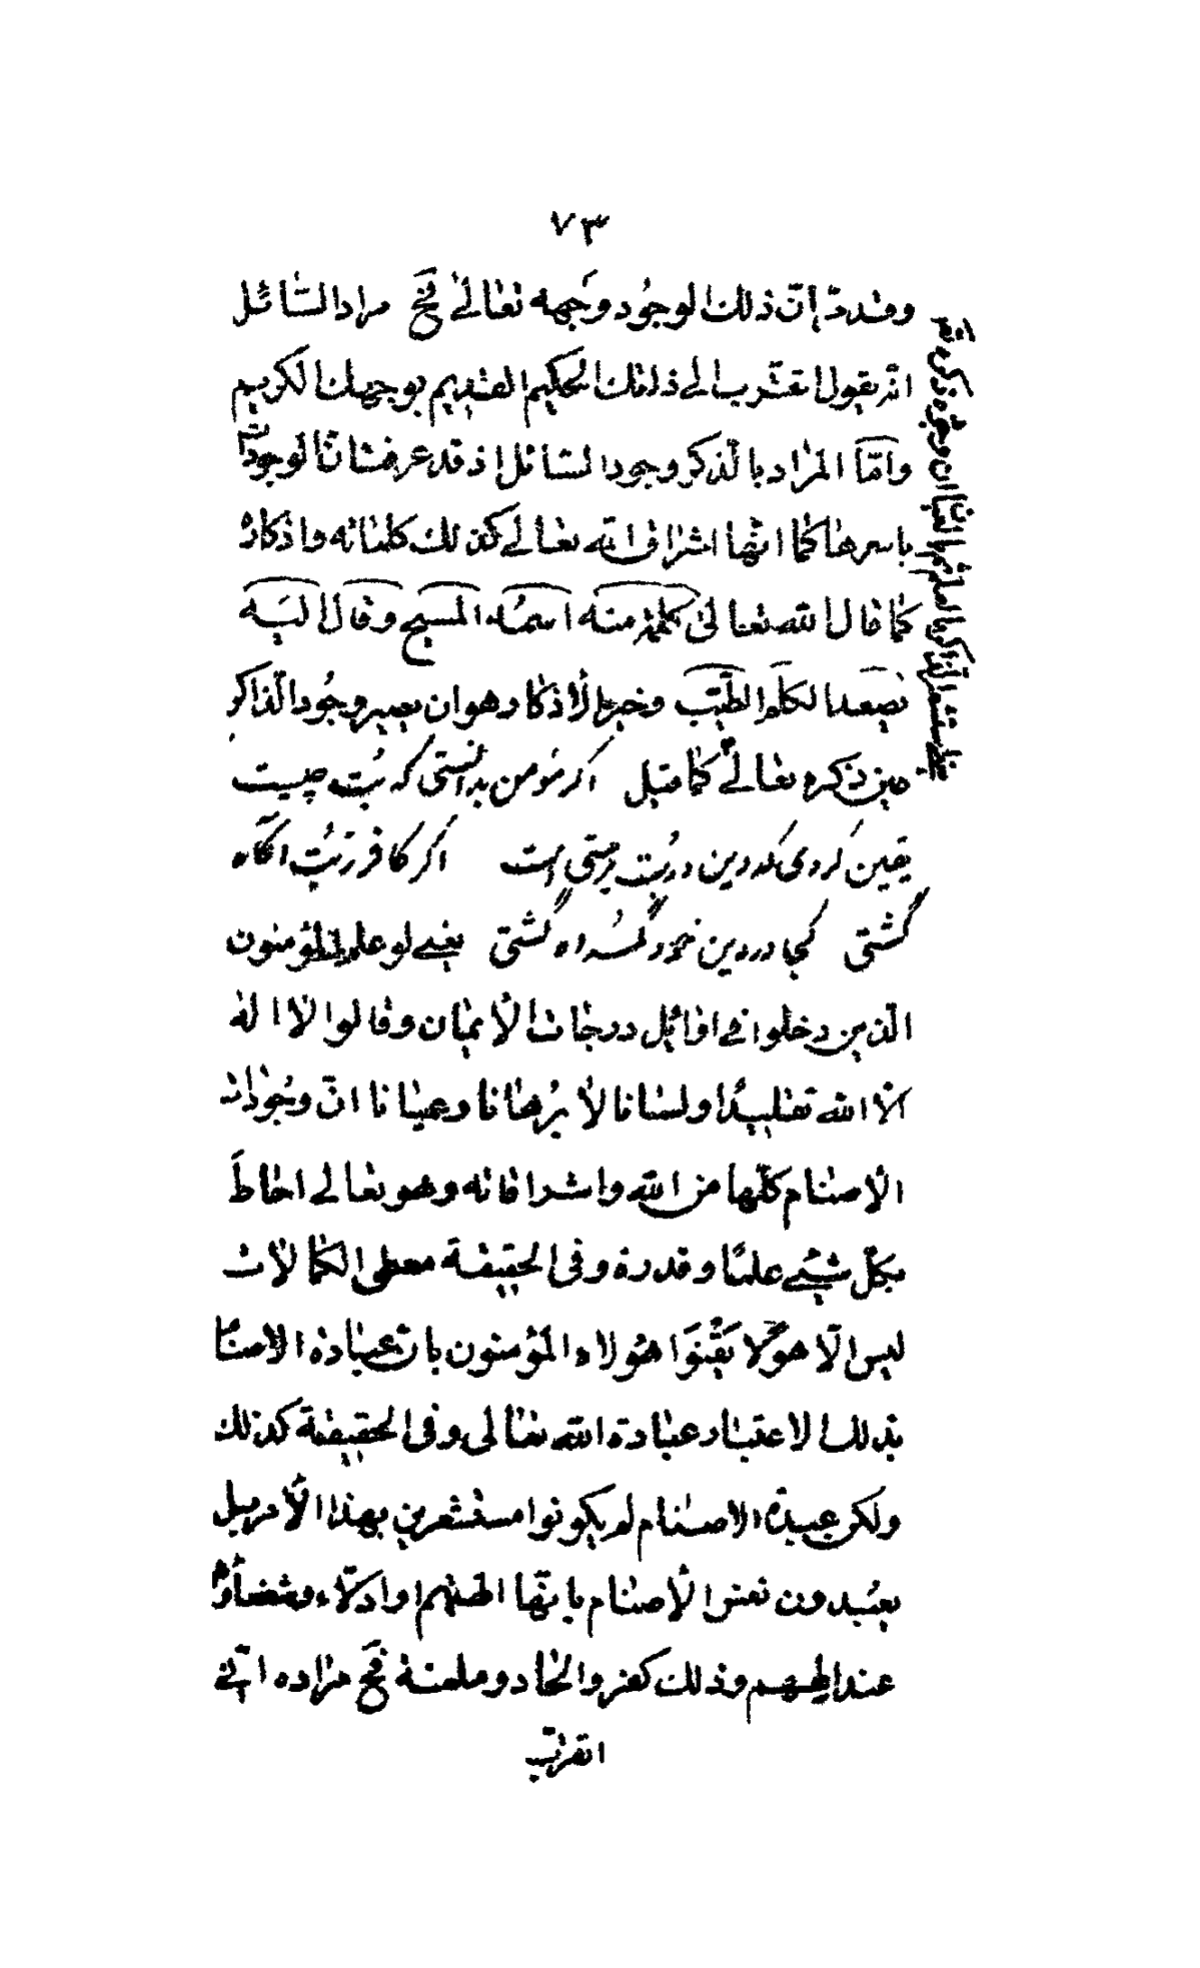 ٧٣
وقد مرّ انّ ذلك الوجود وجهه تعالى فح مراد السّائل
انّه يقول اتقرّب الى ذاتك الحكيم القديم بوجهك الكريم
وامّا المراد بالذّكر وجود السّائل اذ قد عرفت انّ الوجودات
باسرها كما انّها اشراق الله تعالى كذلك كلماته واذكاره
كما قال الله تعالى كلمة منه اسمه المسيح وقال اليه
يصعد الكلم الطّيّب وخير الاذكار هو ان يصير وجود الذّاكر
عين ذكره تعالى كما قيل اگر مؤمن بدانستى كه بُت چيست
يقين كردى كه دين در بُت پرستى است اگر كافر ز بُت آگاه
گشتى كجا در دين خود گمراه گشتى يعنى لو علم المؤمنون
الّذين دخلوا فى اوائل درجات الأيمان وقالوا لا اله
الّا الله تقليدًا ولسانا لا برهانا وعيانا انّ وجودات
الأصنام كلّها من الله واشراقاته وهو تعالى احاط
بكلّ شيىء علمًا وقدرة وفى الحقيقة معطى الكمالات
ليس الّا هو لا يقنوا هؤلاء المؤمنون بانّ عبادة الاصنام
بذلك الاعتبار عبادة الله تعالى وفى الحقيقة كذلك
ولكن عبدة الاصنام لم يكونوا مستشعرين بهذا الأمر بل
يعبدون نفس الأصنام بانّها الهتهم وادلّاء وشفعاؤهم
عند الههم وذلك كفر والحاد وملعنة فح مراده انّى
اتقرّب